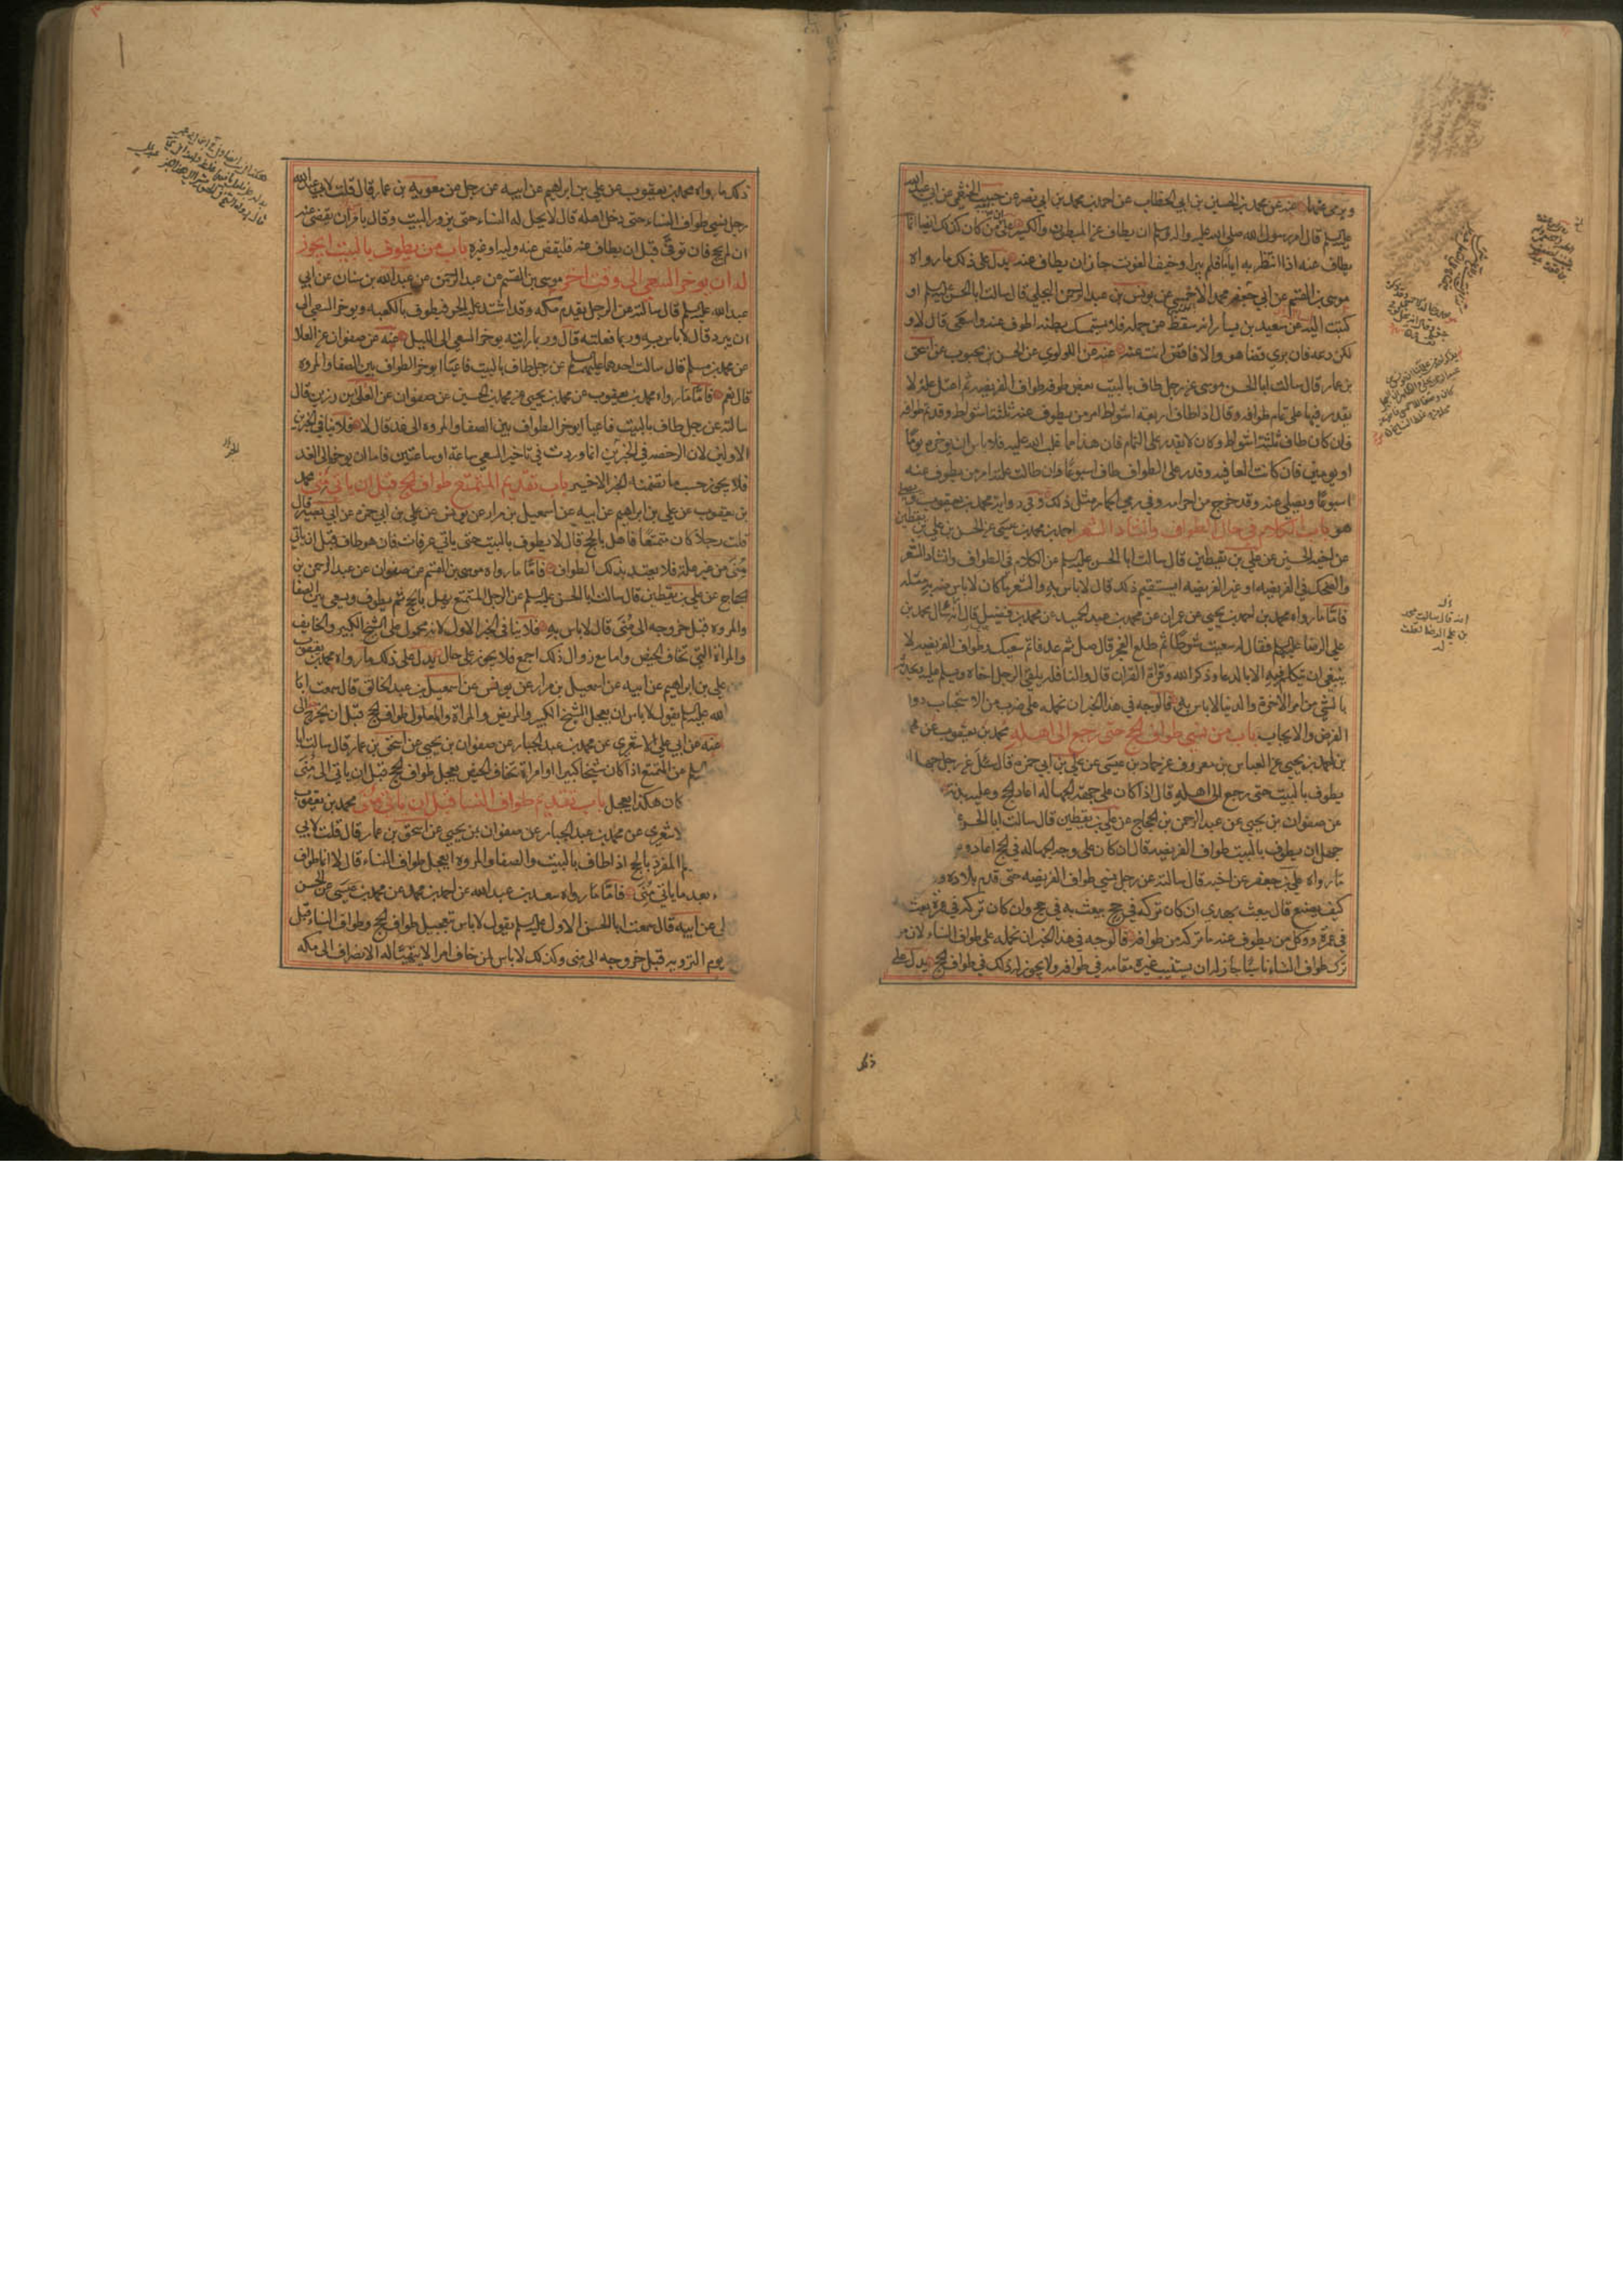 ويرمى عنهما عنه عن محمد بن الحسين بن ابي الخطاب عن احمد بن محمد بن ابي نصر عن حبيب الخثعمي عن ابي عبد الله
عليه السلم قال امر رسول الله صلى الله عليه واله وسلم ان يطاف عن المبطون والكسير على ان من كان كذلك ايضا انما
يطاف عنه اذا انتظر به اياما فلم يبرا وخيف الفوت جاز ان يطاف عنه يدل على ذلك ما رواه
موسى بن القسم عن ابي جعفر محمد الاحمسي عن يونس بن عبد الرحمن البجلي قال سالت ابا الحسن عليه السلم او
كتبت اليه عن سعيد بن يسار انه سقط من جمله فلا يستمسك بطنه اطوف عنه واسعى قال لا و
لكن دعه فان برى قضا هو والا فاقض انت عنه عنه عن اللولوي عن الحسن بن محبوب عن اسحق
بن عمار قال سالت ابا الحسن موسى عن رجل طاف بالبيت بعض طوفه طواف الفريضه ثم اعتل علة لا
يقدر فيها على تمام طوافه وقال اذا طاف اربعه اشواط امر من يطوف عنه ثلثة اشواط وقد تم طوافه
فان كان طاف ثلثة اشواط وكان لا يقدر على التمام فان هذا مما غلب الله عليه فلا باس ان يوخره يوما
او يومين فان كانت العافيه وقدر على الطواف طاف اسبوعا وان طالت علته امر من يطوف عنه
اسبوعا ويصلى عنه وقد خرج من احرامه وفي رمي الجمار مثل ذلك وفي رواية محمد بن يعقوب ويصلي
هو باب الكلام في حال الطواف وانشاد الشعر احمد بن محمد بن عيسى عن الحسن بن علي بن يقطين
عن اخيه الحسين عن علي بن يقطين قال سالت ابا الحسن عليه السلم عن الكلام في الطواف وانشاد الشعر
والضحك في الفريضه او غير الفريضه ايستقيم ذلك قال لا باس به والشعر ما كان لا باس به مثله
فاما ما رواه محمد بن احمد بن يحيى عن عمران عن محمد بن عبد الحميد عن محمد بن فضيل قال انه سال محمد بن
علي الرضا عليهم السلم فقال له سعيت شوطا ثم طلع الفجر قال صل ثم عد فاتم سعيك وطواف الفريضه لا
ينبغي ان يتكلم فيه الا بالدعا وذكر الله وقراة القران قال والنافله يلقى الرجل اخاه ويسلم عليه ويحدثه
بالشي من امر الاخرة والدنيا لا باس به فالوجه في هذا الخبر ان نحمله على ضرب من الاستحباب دون
الفرض والايجاب باب من نسي طواف الحج حتى رجع الى اهله محمد بن يعقوب عن محمد
بن احمد بن يحيى عن العباس بن معروف عن حماد بن عيسى عن علي بن ابي حمزه قال سئل عن رجل جهل ان
يطوف بالبيت حتى رجع الى اهله قال اذا كان على جهة الجهالة اعاد الحج وعليه بدنة
عن صفوان بن يحيى عن عبد الرحمن بن الحجاج عن علي بن يقطين قال سالت ابا الحسن
جهل ان يطوف بالبيت طواف الفريضه قال ان كان على وجه الجهاله في الحج اعاد و
ما رواه علي بن جعفر عن اخيه قال سالته عن رجل نسي طواف الفريضه حتى قدم بلاده و
كيف يصنع قال يبعث بهدي ان كان تركه في حج يبعث به في حج وان كان تركه في عمرة بعث
في عمرة ووكل من يطوف عنه ما تركه من طوافه فالوجه في هذا الخبر ان نحمله على طواف النساء لان من
ترك طواف النساء ناسيا جاز له ان يستنيب غيره مقامه في طوافه ولا يجوز له ذلك في طواف الحج يدل على
ذلك
ذلك ما رواه محمد بن يعقوب عن علي بن ابراهيم عن ابيه عن رجل عن معويه بن عمار قال قلت لابي عبد الله
رجل نسي طواف النساء حتى دخل اهله قال لا يحل له النساء حتى يزور البيت وقال يامر ان يقضى عنه
ان لم يحج فان توفي قبل ان يطاف عنه فليقض عنه وليه او غيره باب من يطوف بالبيت ايجوز
له ان يوخر السعي الى وقت اخر موسى بن القسم عن عبد الرحمن عن عبد الله بن سنان عن ابي
عبد الله عليه السلم قال سالته عن الرجل يقدم مكه وقد اشتد عليه الحر فيطوف بالكعبه ويوخر السعي الى
ان يبرد قال لا باس به وربما فعلته قال وربما رايته يوخر السعي الى الليل عنه عن صفوان عن العلا
عن محمد بن مسلم قال سالت احدهما عليهما السلم عن رجل طاف بالبيت فاعيا ايوخر الطواف بين الصفا والمروه
قال نعم فاما ما رواه محمد بن يعقوب عن محمد بن يحيى عن محمد بن الحسين عن صفوان عن العلا بن رزين قال
سالته عن رجل طاف بالبيت فاعيا ايوخر الطواف بين الصفا والمروه الى غد قال لا فلا ينافي الخبرين
الاولين لان الرخصه في الخبرين انما وردت في تاخير السعي ساعة او ساعتين فاما ان يوخر الى الغد
فلا يجوز حسب ما تضمنه الخبر الاخير باب تقديم المتمتع طواف الحج قبل ان ياتي منى محمد
بن يعقوب عن علي بن ابراهيم عن ابيه عن اسمعيل بن مرار عن يونس عن علي بن ابي حمزه عن ابي بصير قال
قلت رجل كان متمتعا فاهل بالحج قال لا يطوف بالبيت حتى ياتي عرفات فان هو طاف قبل ان ياتي
منى من غير علة فلا يعتد بذلك الطواف فاما ما رواه موسى بن القسم عن صفوان عن عبد الرحمن بن
الحجاج عن علي بن يقطين قال سالت ابا الحسن عليه السلم عن الرجل المتمتع يهل بالحج ثم يطوف ويسعى بين الصفا
والمروه قبل خروجه الى منى قال لا باس به فلا ينافي الخبر الاول لانه محمول على الشيخ الكبير والخايف
والمراة التي تخاف الحيض واما مع زوال ذلك اجمع فلا يجوز على حال يدل على ذلك ما رواه محمد بن يعقوب
علي بن ابراهيم عن ابيه عن اسمعيل بن مرار عن يونس عن اسمعيل بن عبد الخالق قال سمعت ابا
الله عليه السلم يقول لا باس ان يعجل الشيخ الكبير والمريض والمراة والمعلول طواف الحج قبل ان يخرج الى
عنه عن ابي علي الاشعري عن محمد بن عبد الجبار عن صفوان بن يحيى عن اسحق بن عمار قال سالت ابا
عن المتمتع اذا كان شيخا كبيرا او امراة تخاف الحيض يعجل طواف الحج قبل ان ياتي الى منى
كان هكذا يعجل باب تقديم طواف النسا قبل ان ياتي منى محمد بن يعقوب
الاشعري عن محمد بن عبد الجبار عن صفوان بن يحيى عن اسحق بن عمار قال قلت لابي
المفرد بالحج اذا طاف بالبيت والصفا والمروه ايعجل طواف النساء قال لا انما طواف
بعد ما ياتي منى فاما ما رواه سعد بن عبد الله عن احمد بن محمد عن محمد بن عيسى عن الحسن
عن ابيه قال سمعت ابا الحسن الاول عليه السلم يقول لا باس بتعجيل طواف الحج وطواف النساء قبل
يوم الترويه قبل خروجه الى منى وكذلك لا باس لمن خاف امرا لا يتهيا له الانصراف الى مكه